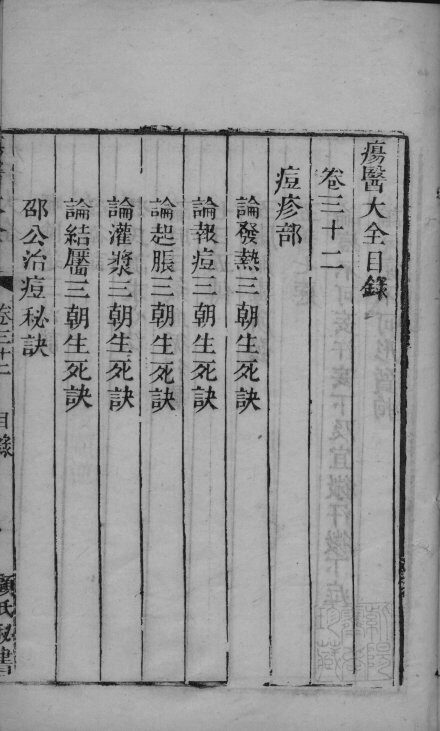 瘍醫大全目錄
卷三十二
痘疹部
論發熱三朝生死訣
論報痘三朝生死訣
論起脹三朝生死訣
論灌漿三朝生死訣
論結靨三朝生死訣
邵公治痘秘訣
卷三十二
目錄
顧氏秘書